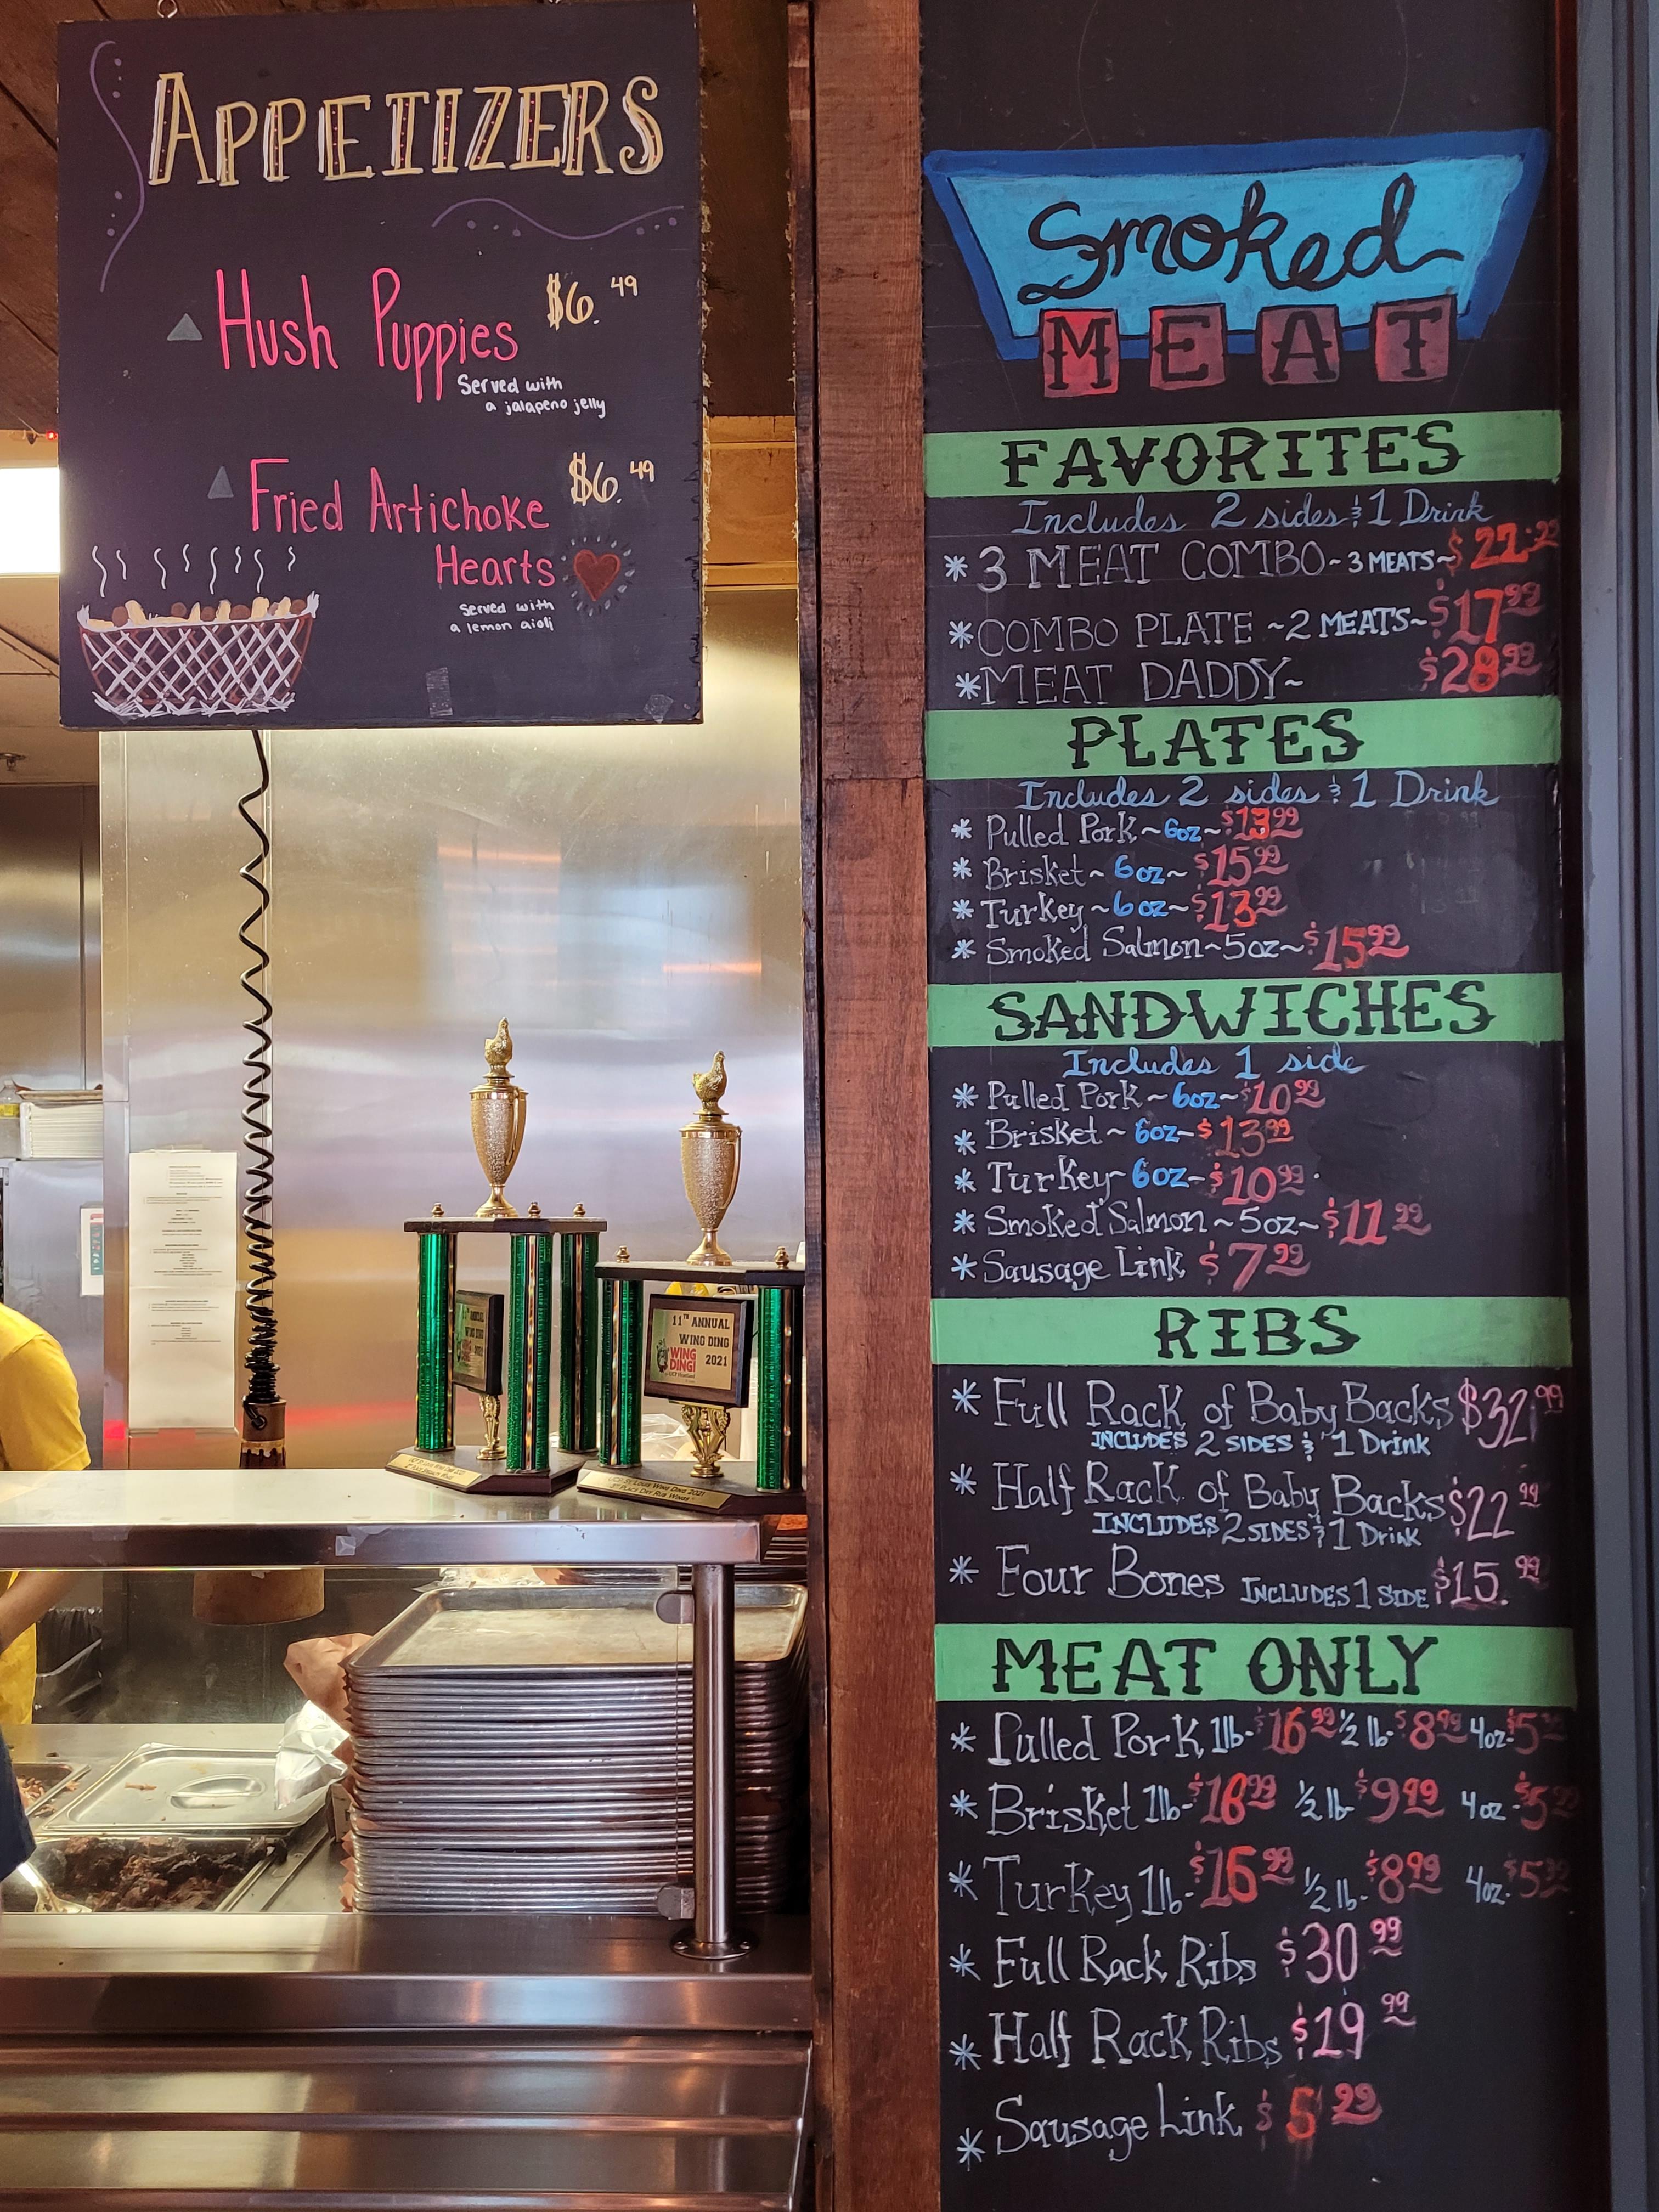 APPETIZERS
Hush Puppies $6.49
Served with
a jalapeno jelly
Fried Artichoke $6.49
Hearts
Served with
a lemon aioli
11TH ANNUAL
WING DING
2021
WING
DING!
Smoked
MEAT
FAVORITES
Includes 2 sides & 1 Drink
* 3 MEAT COMBO ~ 3 MEATS ~
* COMBO PLATE ~ 2 MEATS ~ $17.99
* MEAT DADDY ~ $28.99
PLATES
Includes 2 sides & 1 Drink
* Pulled Pork ~ 6oz ~ $13.99
* Brisket ~ 6oz ~ $15.99
* Turkey ~ 6oz ~ $13.99
* Smoked Salmon ~ 5oz ~ $15.99
SANDWICHES
Includes 1 side
* Pulled Pork ~ 6oz ~ $10.99
* Brisket ~ 6oz ~ $13.99
* Turkey ~ 6oz ~ $10.99
* Smoked Salmon ~ 5oz ~ $11.99
* Sausage Link $7.99
RIBS
* Full Rack of Baby Backs $32.99
INCLUDES 2 SIDES & 1 Drink
* Half Rack of Baby Backs $22.99
INCLUDES 2 SIDES & 1 Drink
* Four Bones INCLUDES 1 SIDE $15.99
MEAT ONLY
* Pulled Pork 1lb- $16.99 1/2 lb- $8.99 4oz- $5.99
* Brisket 1lb- $18.99 1/2 lb- $9.99 4oz- $5.99
* Turkey 1lb- $16.99 1/2 lb- $8.99 4oz- $5.99
* Full Rack Ribs $30.99
* Half Rack Ribs $19.99
* Sausage Link $5.99